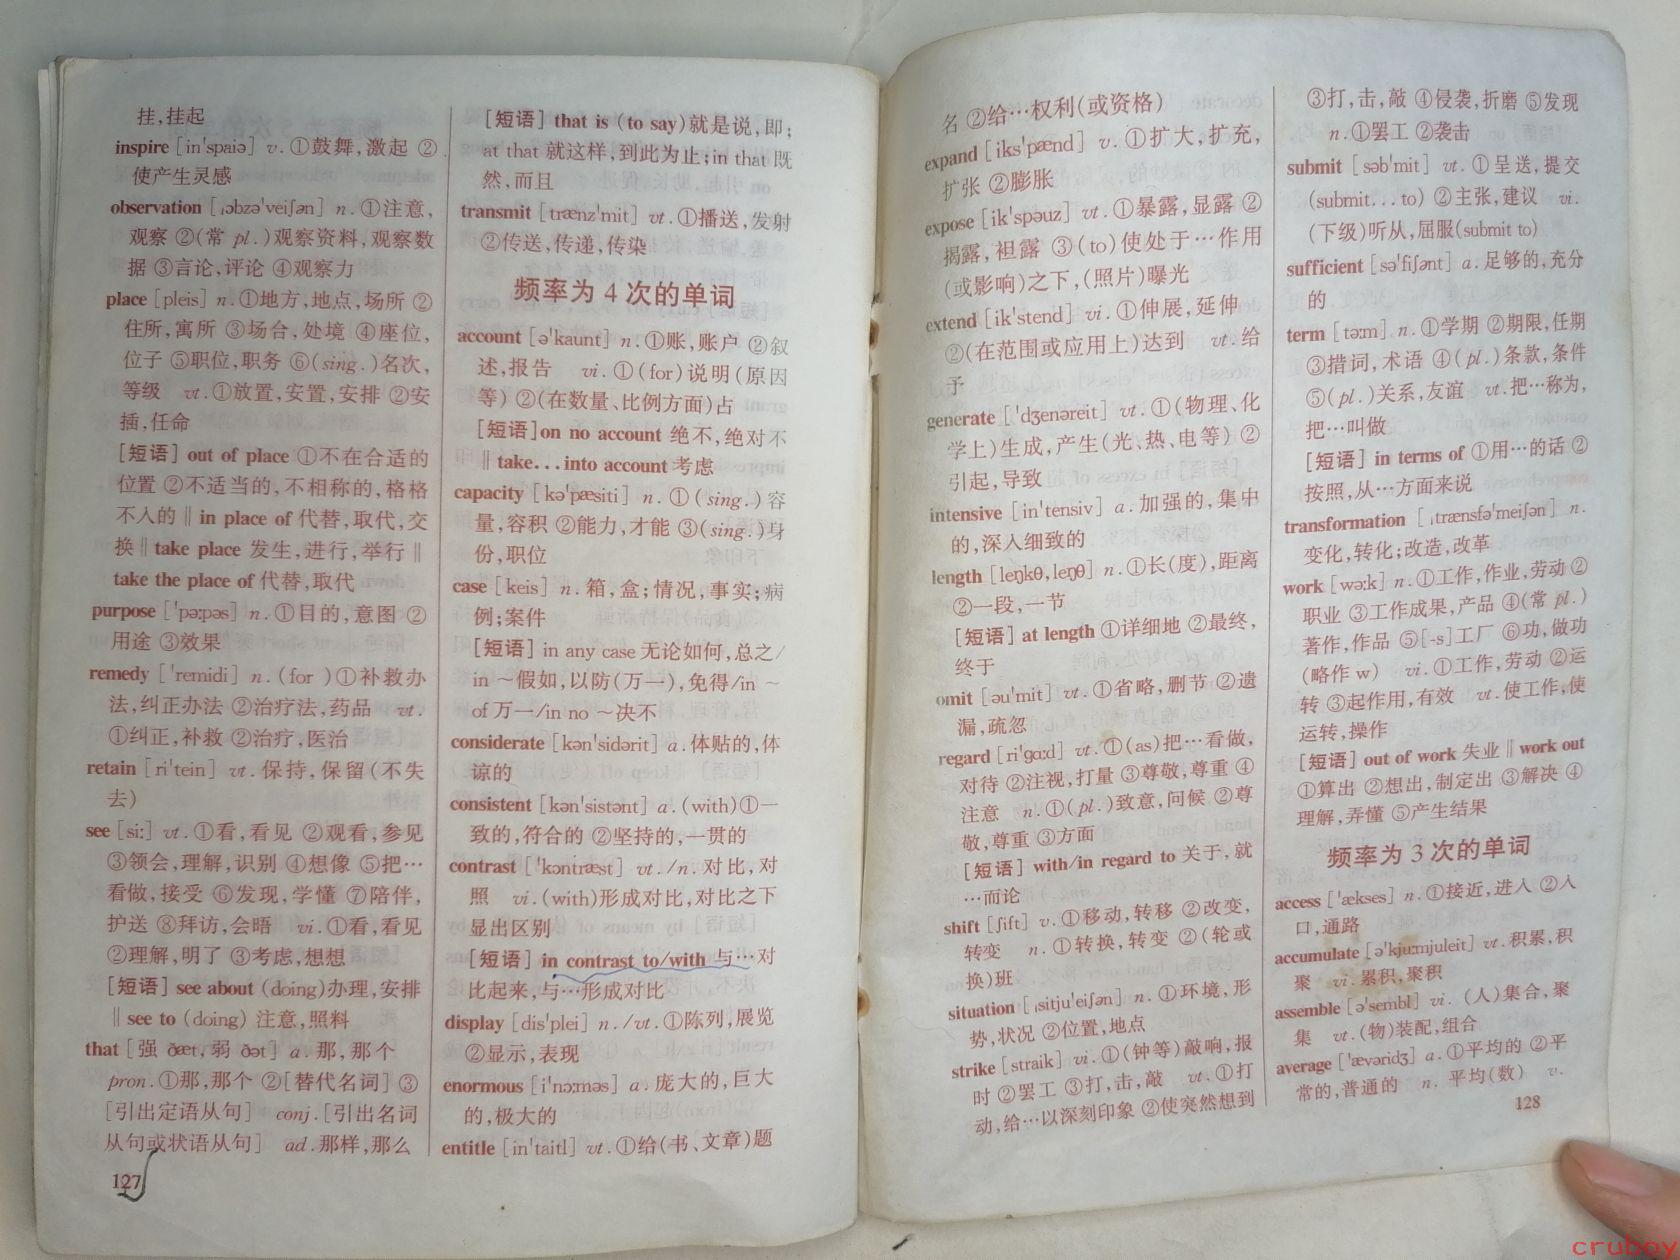 挂,挂起
inspire [in'spaiə] v. ①鼓舞,激起 ②
使产生灵感
observation [ˌɔbzə'veiʃən] n. ①注意,
观察 ②(常 pl.)观察资料,观察数
据 ③言论,评论 ④观察力
place [pleis] n. ①地方,地点,场所 ②
住所,寓所 ③场合,处境 ④座位,
位子 ⑤职位,职务 ⑥(sing.)名次,
等级 vt. ①放置,安置,安排 ②安
插,任命
[短语] out of place ①不在合适的
位置 ②不适当的,不相称的,格格
不入的‖in place of 代替,取代,交
换‖take place 发生,进行,举行‖
take the place of 代替,取代
purpose ['pə:pəs] n. ①目的,意图 ②
用途 ③效果
remedy ['remidi] n. (for )①补救办
法,纠正办法 ②治疗法,药品 vt.
①纠正,补救 ②治疗,医治
retain [ri'tein] vt. 保持,保留(不失
去)
see [si:] vt. ①看,看见 ②观看,参见
③领会,理解,识别 ④想像 ⑤把…
看做,接受 ⑥发现,学懂 ⑦陪伴,
护送 ⑧拜访,会晤 vi. ①看,看见
②理解,明了 ③考虑,想想
[短语] see about (doing)办理,安排
‖see to (doing) 注意,照料
that [强 ðæt,弱 ðət] a. 那,那个
pron. ①那,那个 ②[替代名词] ③
[引出定语从句] conj. [引出名词
从句或状语从句] ad. 那样,那么
127
[短语] that is (to say)就是说,即;
at that 就这样,到此为止;in that 既
然,而且
transmit [trænz'mit] vt. ①播送,发射
②传送,传递,传染
频率为 4 次的单词
account [ə'kaunt] n. ①账,账户 ②叙
述,报告 vi. ①(for)说明(原因
等) ②(在数量、比例方面)占
[短语]on no account 绝不,绝对不
‖take...into account 考虑
capacity [kə'pæsiti] n. ①(sing.)容
量,容积 ②能力,才能 ③(sing.)身
份,职位
case [keis] n. 箱,盒;情况,事实;病
例;案件
[短语] in any case 无论如何,总之/
in ～假如,以防(万一),免得/in ～
of 万一/in no ～决不
considerate [kən'sidərit] a. 体贴的,体
谅的
consistent [kən'sistənt] a. (with)①一
致的,符合的 ②坚持的,一贯的
contrast ['kɔntræst] vt./n. 对比,对
照 vi. (with)形成对比,对比之下
显出区别
[短语] in contrast to/with 与…对
比起来,与…形成对比
display [dis'plei] n./vt. ①陈列,展览
②显示,表现
enormous [i'nɔ:məs] a. 庞大的,巨大
的,极大的
entitle [in'taitl] vt. ①给(书、文章)题
名 ②给…权利(或资格)
expand [iks'pænd] v. ①扩大,扩充,
扩张 ②膨胀
expose [ik'spəuz] vt. ①暴露,显露 ②
揭露,袒露 ③(to)使处于…作用
(或影响)之下,(照片)曝光
extend [ik'stend] vi. ①伸展,延伸
②(在范围或应用上)达到 vt. 给
予
generate ['dʒenəreit] vt. ①(物理、化
学上)生成,产生(光、热、电等) ②
引起,导致
intensive [in'tensiv] a. 加强的,集中
的,深入细致的
length [leŋkθ,leŋθ] n. ①长(度),距离
②一段,一节
[短语] at length ①详细地 ②最终,
终于
omit [əu'mit] vt. ①省略,删节 ②遗
漏,疏忽
regard [ri'gɑ:d] vt. ①(as)把…看做,
对待 ②注视,打量 ③尊敬,尊重 ④
注意 n. ①(pl.)致意,问候 ②尊
敬,尊重 ③方面
[短语] with/in regard to 关于,就
…而论
shift [ʃift] v. ①移动,转移 ②改变,
转变 n. ①转换,转变 ②(轮或
换)班
situation [ˌsitju'eiʃən] n. ①环境,形
势,状况 ②位置,地点
strike [straik] vi. ①(钟等)敲响,报
时 ②罢工 ③打,击,敲 vt. ①打
动,给…以深刻印象 ②使突然想到
③打,击,敲 ④侵袭,折磨 ⑤发现
n. ①罢工 ②袭击
submit [səb'mit] vt. ①呈送,提交
(submit...to) ②主张,建议 vi.
(下级)听从,屈服(submit to)
sufficient [sə'fiʃənt] a. 足够的,充分
的
term [tə:m] n. ①学期 ②期限,任期
③措词,术语 ④(pl.)条款,条件
⑤(pl.)关系,友谊 vt. 把…称为,
把…叫做
[短语] in terms of ①用…的话 ②
按照,从…方面来说
transformation [ˌtrænsfə'meiʃən] n.
变化,转化;改造,改革
work [wə:k] n. ①工作,作业,劳动 ②
职业 ③工作成果,产品 ④(常 pl.)
著作,作品 ⑤[-s]工厂 ⑥功,做功
(略作 w) vi. ①工作,劳动 ②运
转 ③起作用,有效 vt. 使工作,使
运转,操作
[短语] out of work 失业‖work out
①算出 ②想出,制定出 ③解决 ④
理解,弄懂 ⑤产生结果
频率为 3 次的单词
access ['ækses] n. ①接近,进入 ②入
口,通路
accumulate [ə'kju:mjuleit] vt. 积累,积
聚 vi. 累积,聚积
assemble [ə'sembl] vi. (人)集合,聚
集 vt. (物)装配,组合
average ['ævəridʒ] a. ①平均的 ②平
常的,普通的 n. 平均(数) v.
128
cruboy